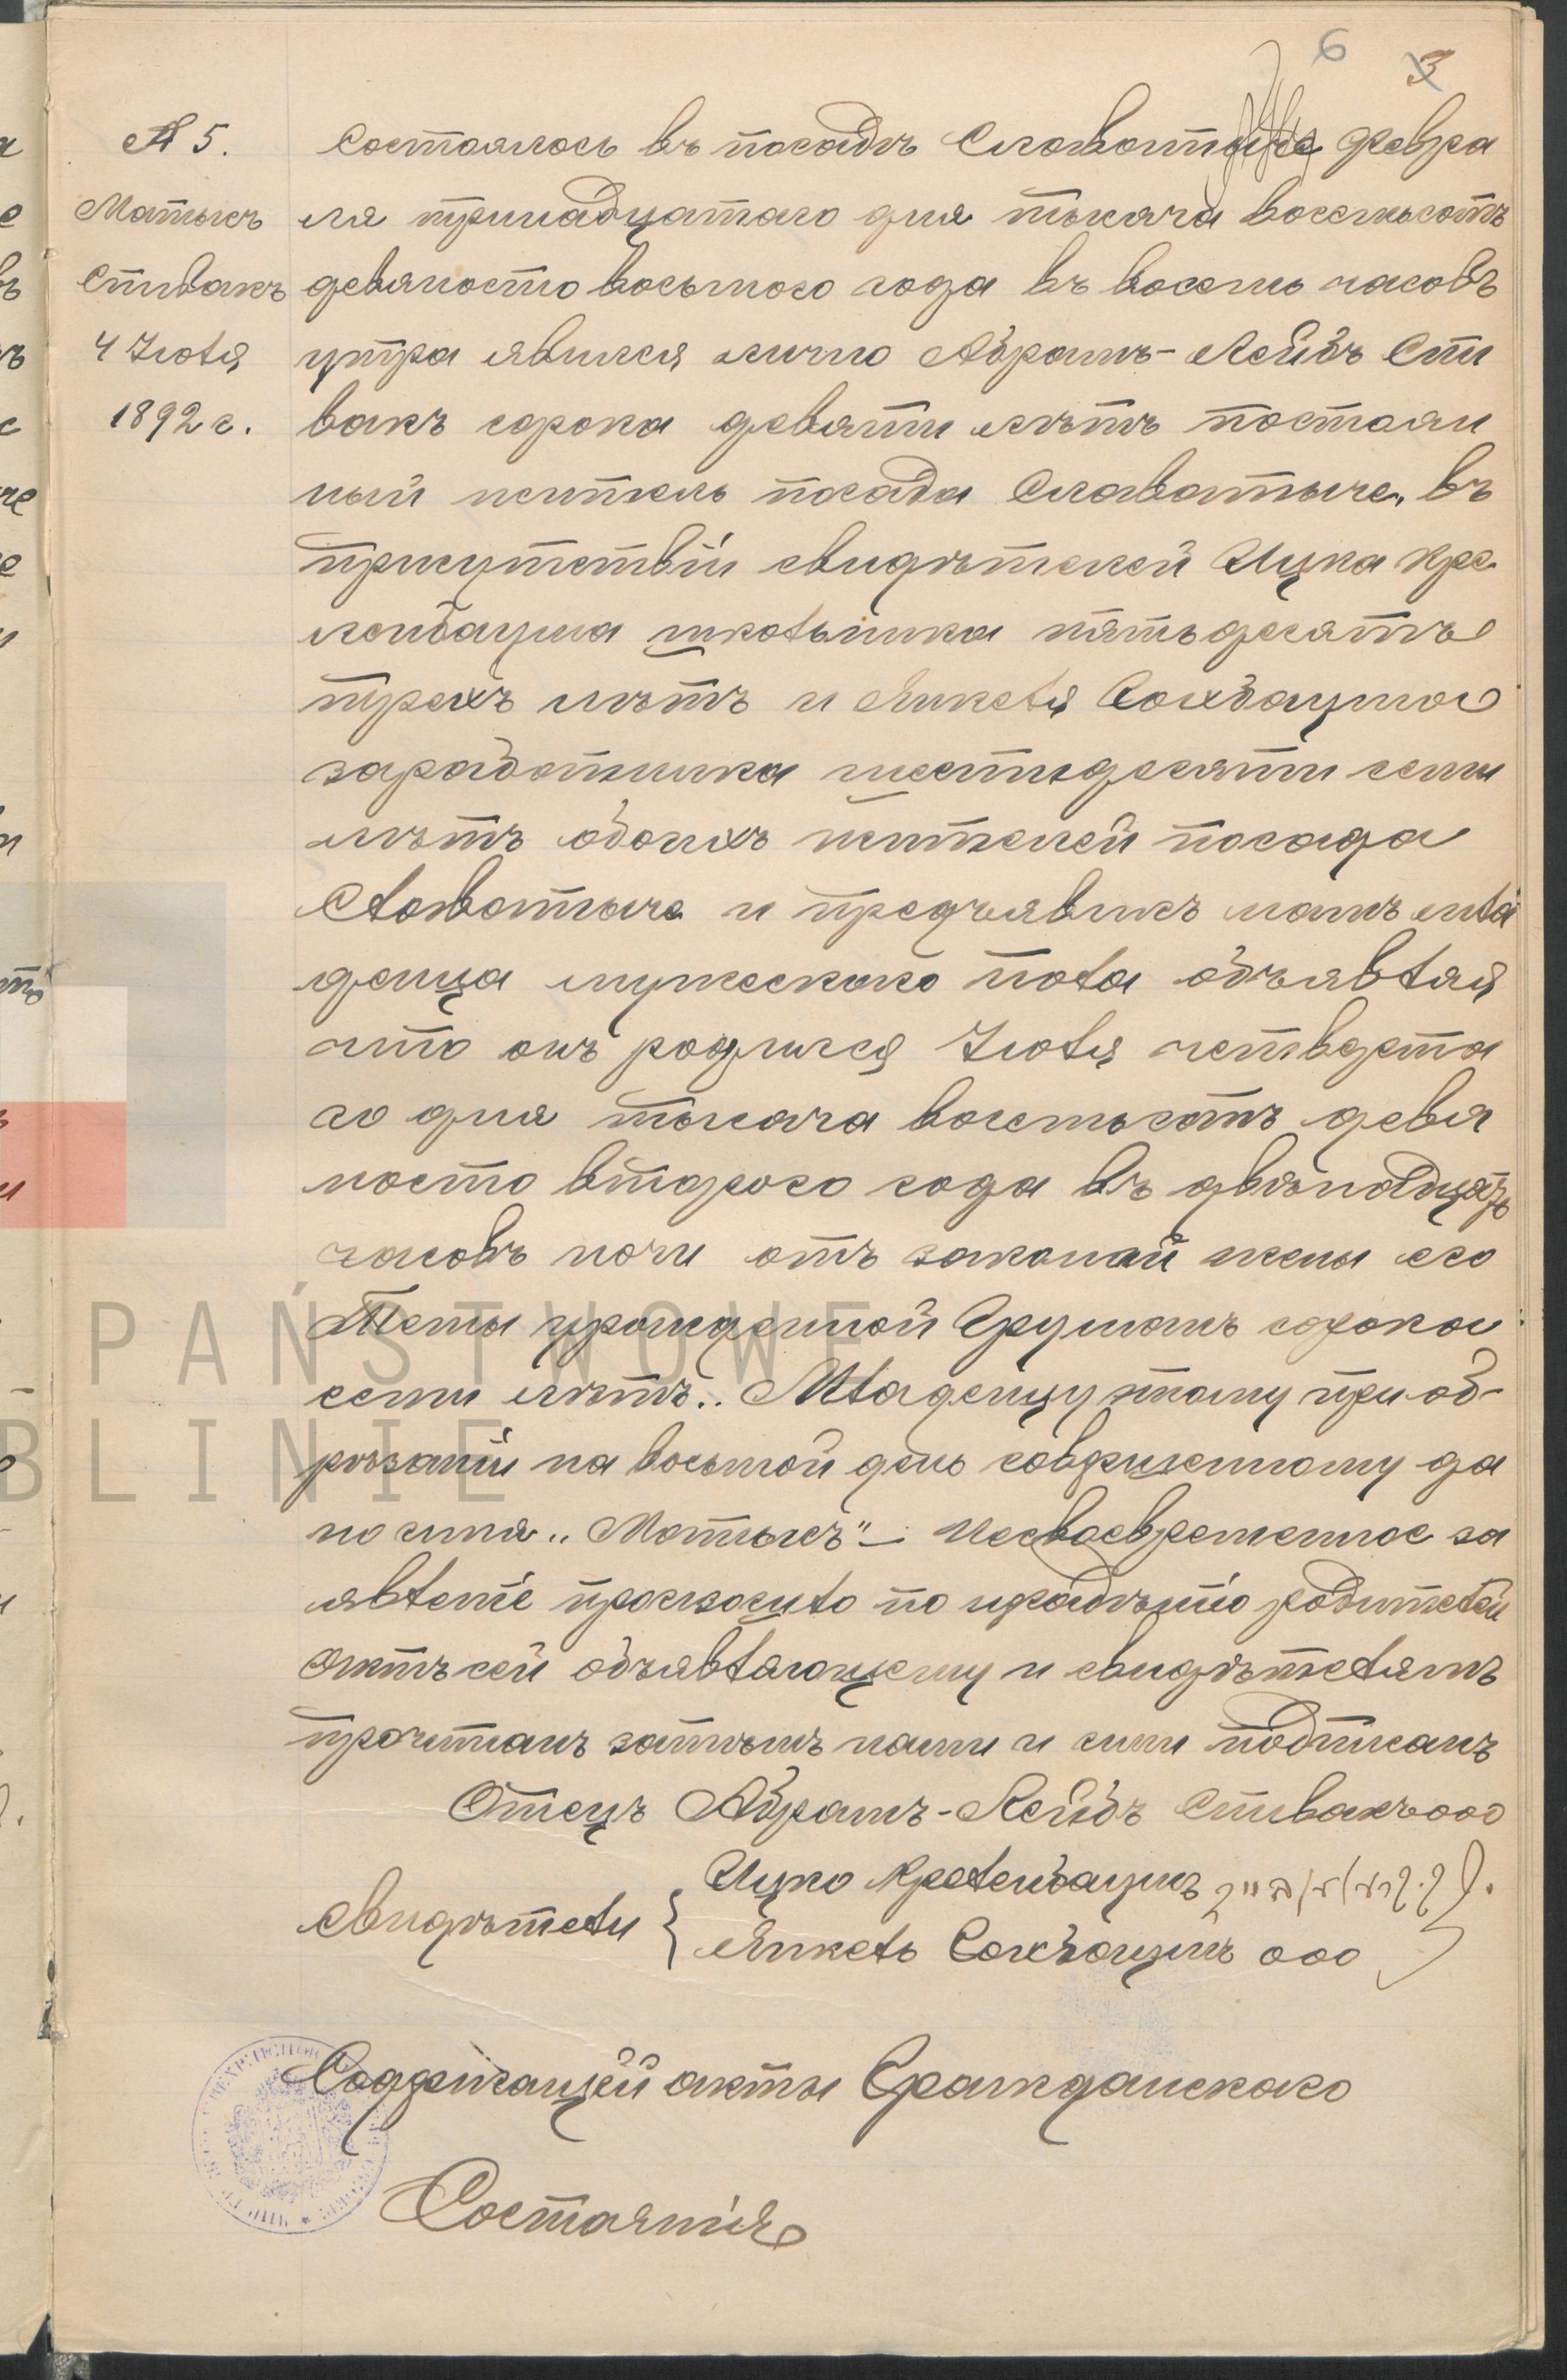 6 3
№ 5.
Матысъ
Спивакъ
4 Іюля
1892 г.
Состоялось въ посадѣ Славатыче Февра
ля тринадцатаго дня тысяча восемьсотъ
девяносто восьмого года въ восемь часовъ
утра явился лично Абрамъ-Лейбъ Спи
вакъ сорока девяти лѣтъ постоян
ный житель посада Славатыче, въ
присутствіи свидѣтелей Ицка Кре
ленбаума школьника пятьдесятъ
трехъ лѣтъ и Янкеля Сокбаума
заработника шестидесяти семи
лѣтъ обоихъ жителей посада
Славатыче и предъявилъ намъ мла
денца мужескаго пола объявляя
что онъ родился Іюля четверта
го дня тысяча восемьсотъ девя
носто второго года въ двѣнадцать
часовъ ночи отъ законной жены его
урожденной Грушанъ сорока
семи лѣтъ.. Младенцу этому при об-
рѣзаніи на восьмой день совершенному да
но имя „Матысъ" — Несвоевременное за
явленіе произошло по нерадѣнію родителей
Актъ сей объявляющему и свидѣтелямъ
прочитанъ затѣмъ нами и ими подписанъ
Отецъ Абрамъ-Лейбъ Спивакъ ооо
Свидѣтели { Ицко Креленбаумъ
Янкель Сокбаумъ ооо
Содержащій акты Гражданскаго
Состоянія
PAŃSTWOWE
BLINIE